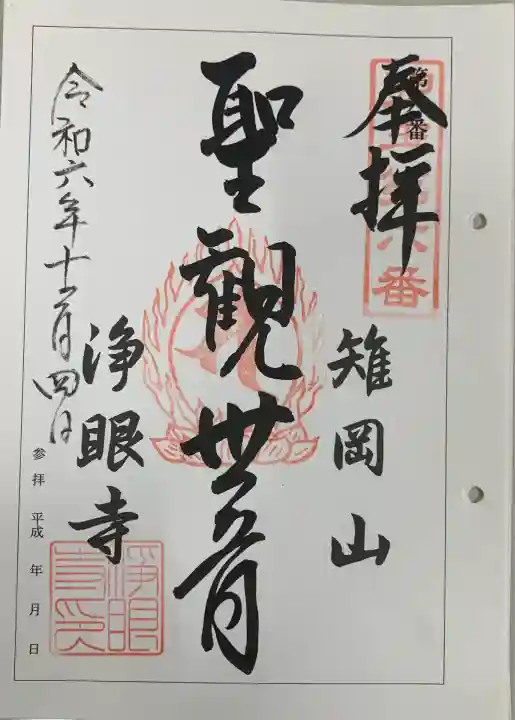 奉拝
第 番
雉岡山
聖観世音
浄眼寺
令和六年十二月四日
参拝 平成 年 月 日
浄眼寺印